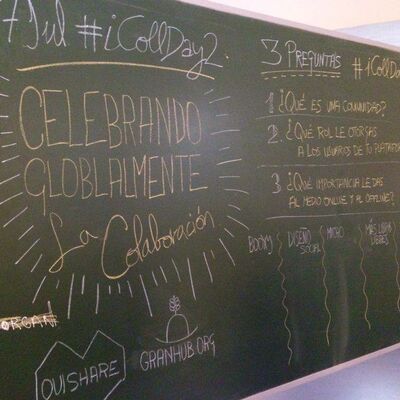 7 Jul #iCollDay2.
CELEBRANDO
GLOBLALMENTE
La Colaboración
OUISHARE
GRANHUB.ORG
3 PREGUNTAS
#iCollDa
1 ¿QUÉ ES UNA COMUNIDAD?
2. ¿QUÉ ROL LE OTORGAS
A LOS USUARIOS DE TU PLATAFOR
3 ¿QUÉ IMPORTANCIA LE DAS
AL MEDIO ONLINE Y AL OFFLINE?
DISEÑO
SOCIAL
MICRO
LIBRES